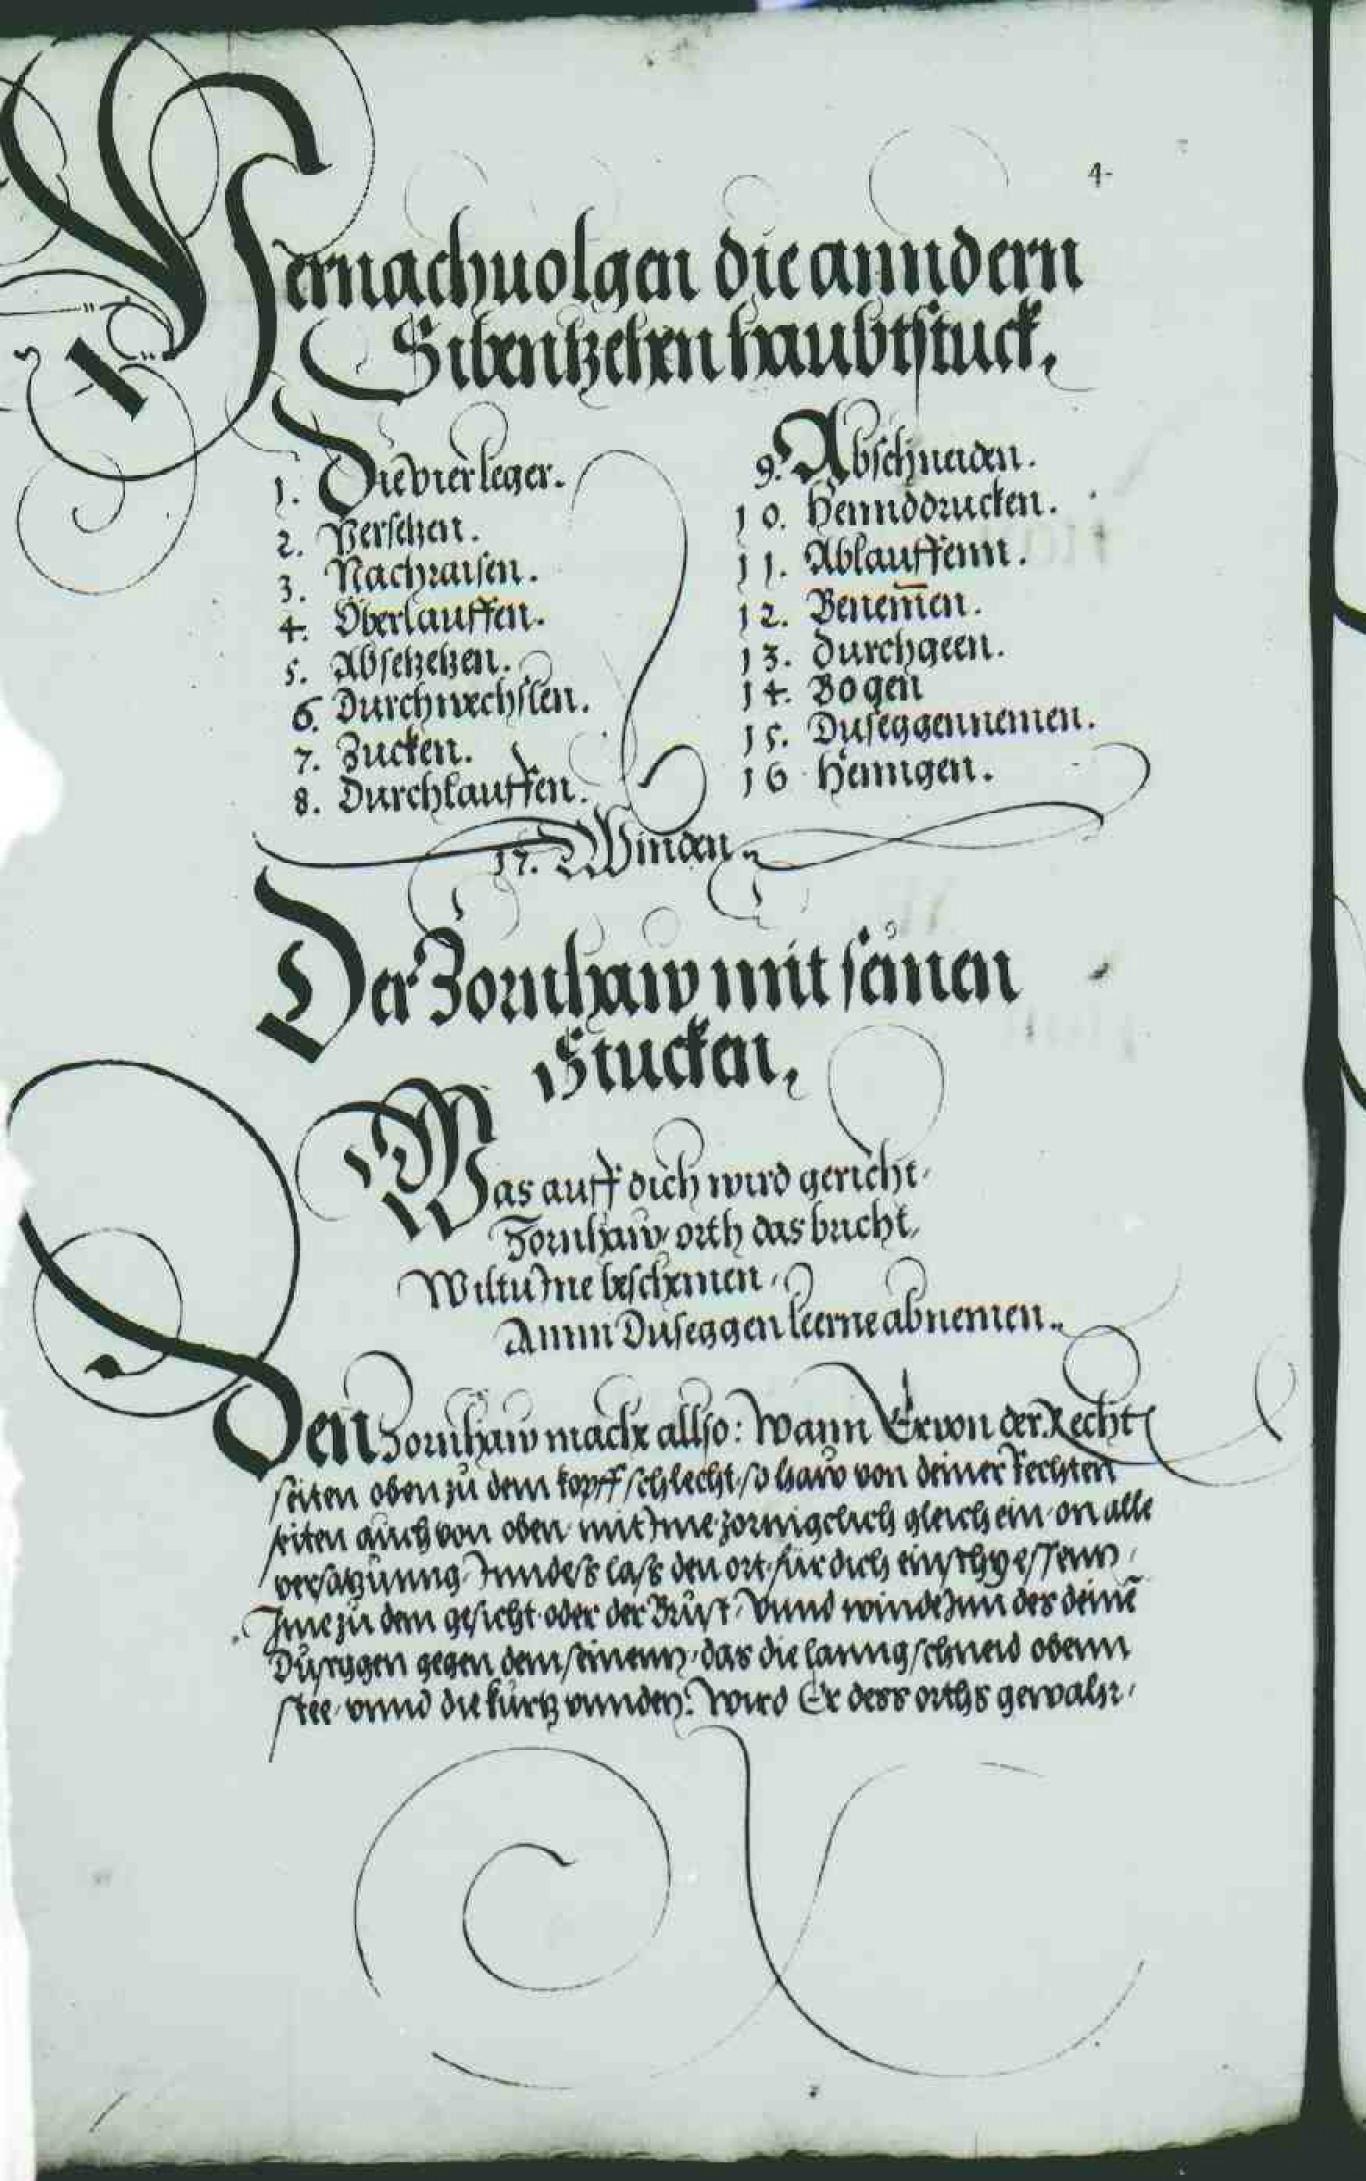 4.
Hernachuolgen die anndern
Sibentzehen haubtstuck.
1. Die vier leger.
2. Versetzen.
3. Nachraisen.
4. Überlauffen.
5. Absetzetzen.
6. Durchwechslen.
7. Zucken.
8. Durchlauffen.
9. Abschneiden.
10. Hennddrucken.
11. Ablauffenn.
12. Benem̄en.
13. Durchgeen.
14. Bogen
15. Duseggennemen.
16 Henngen.
17. Winden.
Der Zornhaw mit seinen
Stucken.
Was auff dich wird gericht,
Zornhaw, orth das bricht,
Wiltu Ine beschemen,
Amm Duseggen leerne abnemen.
Den Zornhaw mache allso: Wann Er von der Recht
seiten oben zu dem kopff schlecht, so haw von deiner rechten
seiten auch von oben mit Ime zornigclich gleich ein on alle
versatzunng, Inndess lass den ort für dich einschyessenn,
Ime zu dem gesicht oder der Brust, vnnd winde Inn des deinē
Duseggen gegen dem seinenn, das die lanng schneid obenn
stee, vnnd die kurtz vnnden: Wird Er dess orths gewahr,